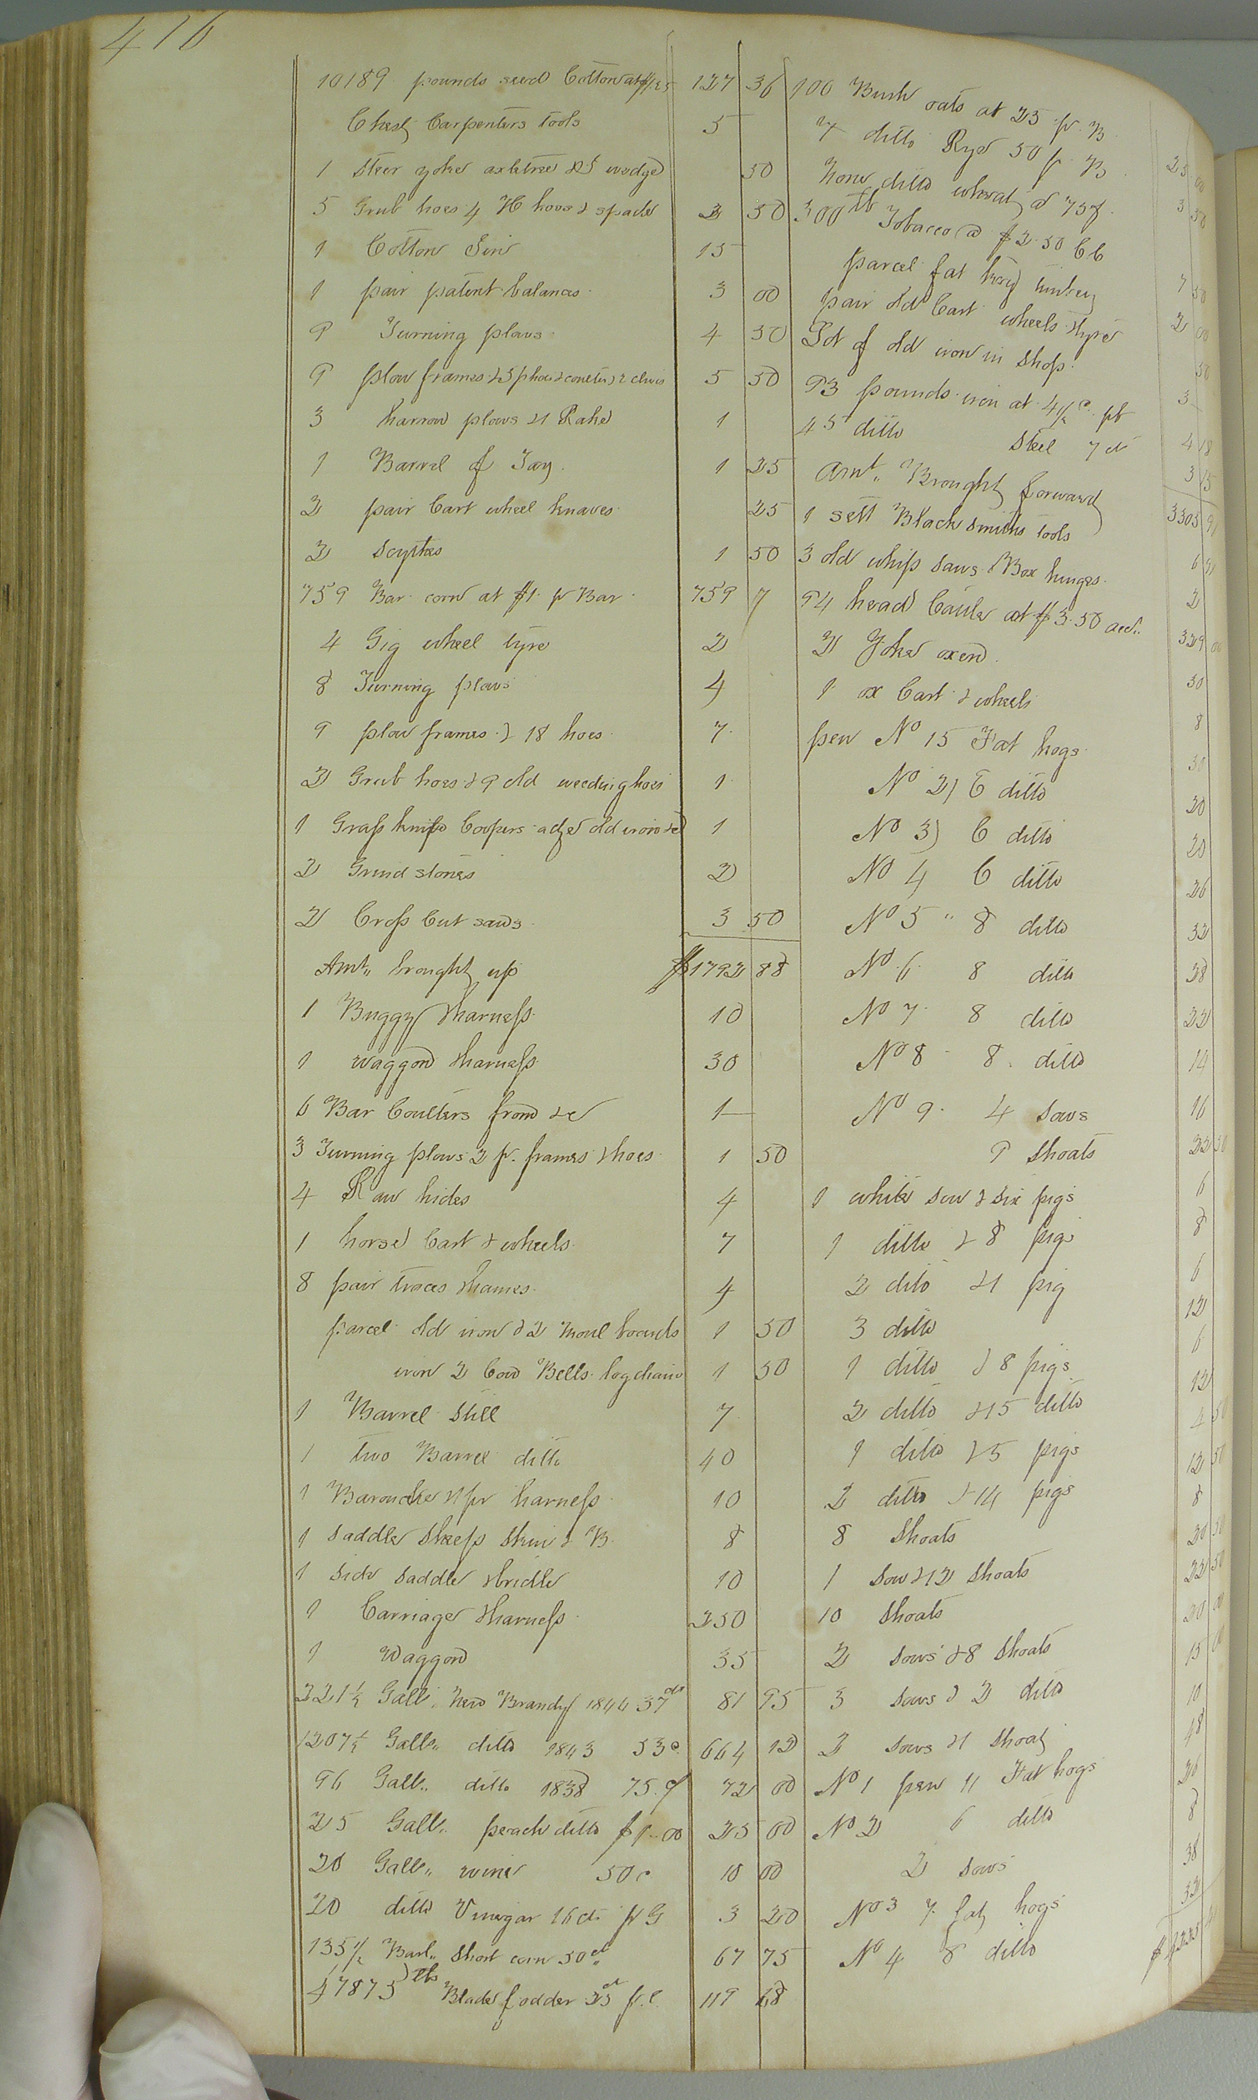 416
10189 pounds seed Cotton at $1.25 127 36
Chest Carpenters tools 5
1 Steer yoke axletree & wedge 50
5 Grub hoes 4 H hoes & spade 2 50
1 Cotton Gin 15
1 pair patent balances 3 00
9 Turning plows 4 50
9 plow frames 5 50
3 harrow plows & 1 Rake 1
1 Barrel of Tar 1 25
2 pair Cart wheel knaves 25
2 Scythes 1 50
759 Bar corn at $1 pr Bar 759
4 Gig wheel tyre 2
8 Turning plows 4
9 plow frames & 18 hoes 7
2 Grub hoes & 9 old weeding hoes 1
1 Grass knife Coopers adze old iron &c 1
2 Grind stones 2
2 Cross Cut saws 3 50
Amt,, brought up $1792 88
1 Buggy & harness 10
1 Waggon & harness 30
6 Bar Coulters from &c 1
3 Turning plows 2 pr. frames & hoes 1 50
4 Raw hides 4
1 horse Cart & wheels 7
8 pair traces & hames 4
parcel old iron & 2 moul boards 1 50
iron 2 Cow Bells log chain 1 50
1 Barrel Still 7
1 two Barrel ditto 40
1 Barouche & 1 pr harness 10
1 Saddle Sheep Skin & B 8
1 Side Saddle & bridle 10
1 Carriage & harness 250
1 Waggon 35
221½ Galls New Brandy 1844 37cts 81 95
1207½ Galls,, ditto 1843 55c 664 12
96 Galls,, ditto 1838 75c 72 00
25 Galls,, peach ditto $1.00 25 00
20 Galls,, wine 50c 10 00
20 ditto Vinegar 16cts pr G 3 20
135½ Barl,, Short corn 50cts 67 75
47873 lbs Blade fodder 25cts p.C 119 68
100 Bush oats at 25 pr B 25 00
7 ditto Rye 50 pr B 3 50
ditto wheat @ 75c
300 lb Tobacco @ $2.50 Cb 7 50
parcel 2 00
pair old Cart wheels & tyre 50
Lot of old iron in Shop 3
93 pounds iron at 4½c pb 4 18
45 ditto Steel 7cts 3 15
Amt,, Brought forward 3303
1 sett Blacksmiths tools 6
3 old whip saws & Box hinges 2
94 head Cattle at $3.50 329 00
2 Yoke oxen 30
1 ox Cart & wheels 8
pen No 1 5 Fat hogs 30
No 2) 6 ditto 20
No 3) 6 ditto 20
No 4 6 ditto 26
No 5 " 8 ditto 32
No 6 8 ditto 28
No 7 8 ditto 22
No 8 8 ditto 14
No 9 4 Sows 16
9 Shoats 22 50
1 white Sow & six pigs 6
1 ditto & 8 pigs 8
2 ditto & 1 pig 6
3 ditto 12
1 ditto & 8 pigs 6
2 ditto & 15 ditto 12
1 ditto & 5 pigs 4 50
2 ditto & 14 pigs 12 50
8 Shoats 8
1 Sow & 12 Shoats 20 50
10 Shoats 22 50
2 Sows & 8 Shoats 20 00
3 Sows & 2 ditto 15 00
2 Sows & 1 Shoat 10
No 1 pen 11 Fat hogs 48
No 2 6 ditto 26
2 Sows 8
No 3 7 fat hogs 38
No 4 8 ditto 32